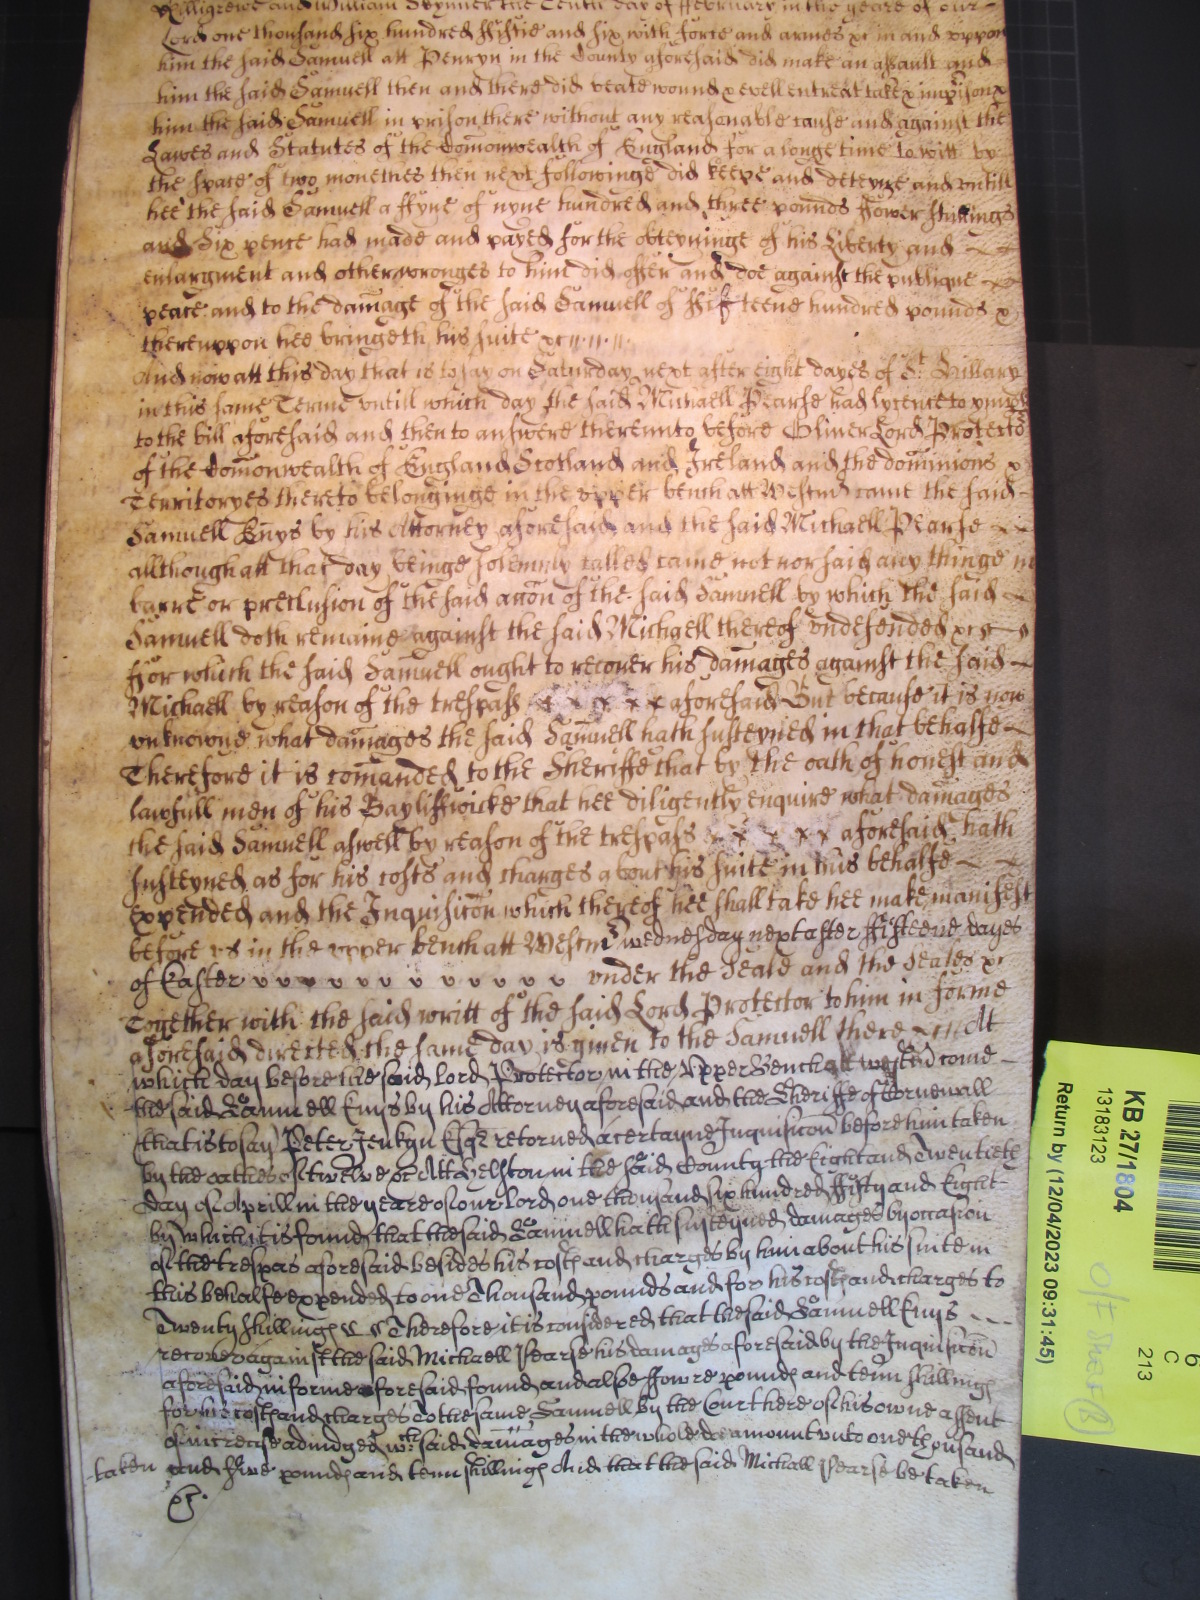 Killigrewe and William Skynner the Tenth day of ffebruary in the yeare of our
Lord one thousand six hundred ffiftie and six with force and armes &c in and vppon
him the said Samuell att Penryn in the County aforesaid did make an assault and
him the said Samuell then and there did beate wound & evell entreat take & imprison &
him the said Samuell in prison there without any reasonable cause and against the
Lawes and Statutes of the Comonwealth of England for a longe time to witt by
the space of two monethes then next followinge did keepe and deteyne and vntill
hee the said Samuell a ffyne of nyne hundred and three pounds ffower shillings
and Six pence had made and payed for the obteyninge of his Liberty and
enlargment and other wronges to him did offer and doe against the publique
peace and to the damage of the said Samuell of ffifteene hundred pounds &
therevppon hee bringeth his suite &c
And now att this day that is to say on Saturday next after eight dayes of St. Hillary
in this same Terme vntill which day the said Michaell Pearse had lycence to
to the bill aforesaid and then to answere therevnto before Oliver Lord Protector
of the Comonwealth of England Scotland and Ireland and the dominions &
Territoryes thereto belonginge in the vpper bench att Westmr came the said
Samuell Enys by his Attorney aforesaid and the said Michaell Pearse
allthough att that day beinge solemnly called came not nor said any thinge in
barre or preclusion of the said accon of the said Samuell by which the said
Samuell doth remaine against the said Michaell thereof vndefended &c
ffor which the said Samuell ought to recover his damages against the said
Michaell by reason of the trespass x x x x x aforesaid But because it is now
vnknowne what damages the said Samuell hath susteyned in that behalfe
Therefore it is comanded to the Sheriffe that by the oath of honest and
lawfull men of his Bayliffwicke that hee diligently enquire what damages
the said Samuell aswell by reason of the trespass x x x x x aforesaid hath
susteyned as for his costs and charges about his suite in this behalfe
expended and the Inquisicon which thereof hee shall take hee make manifest
before vs in the vpper bench att Westmr wednesday next after ffifteene dayes
of Easter v v v v v v v v v v v v vnder the Seale and the Seales &c
Together with the said writt of the said Lord Protector to him in forme
aforesaid directed the same day is given to the Samuell there &c At
which day before the said Lord Protector in the Vpper Bench att come
the said Samuell Enys by his Attorney aforesaid and the Sheriffe of Cornewall
(that is to say) Peter Jenkyn Esqr retorned a certayne Inquisicon before him taken
by the oathes of twelve &c Att Helston in the said County the Eight and Twentieth
day of Aprill in the yeare of our Lord one thousand six hundred ffifty and Eight
by which it is found that the said Samuell hath susteyned damages by occasion
of the trespas aforesaid besides his costs and charges by him about his suite in
this behalfe expended to one Thousand pounds and for his costs and charges to
Twenty shillings &c Therefore it is considered that the said Samuell Enys
recover against the said Michaell Pearse his damages aforesaid by the Inquisicon
aforesaid in forme aforesaid found and alsoe ffowre pounds and tenn shillings
for his costs and charges to the same Samuell by the Court here of his owne assent
of increase adiudged wch. said damages in the whole doe amount vnto one thousand
taken and five pounds and tenn shillings And that the said Michall Pearse be taken
&c.
KB 27/1804
13183123
Return by (12/04/2023 09:31:45)
6
C
213